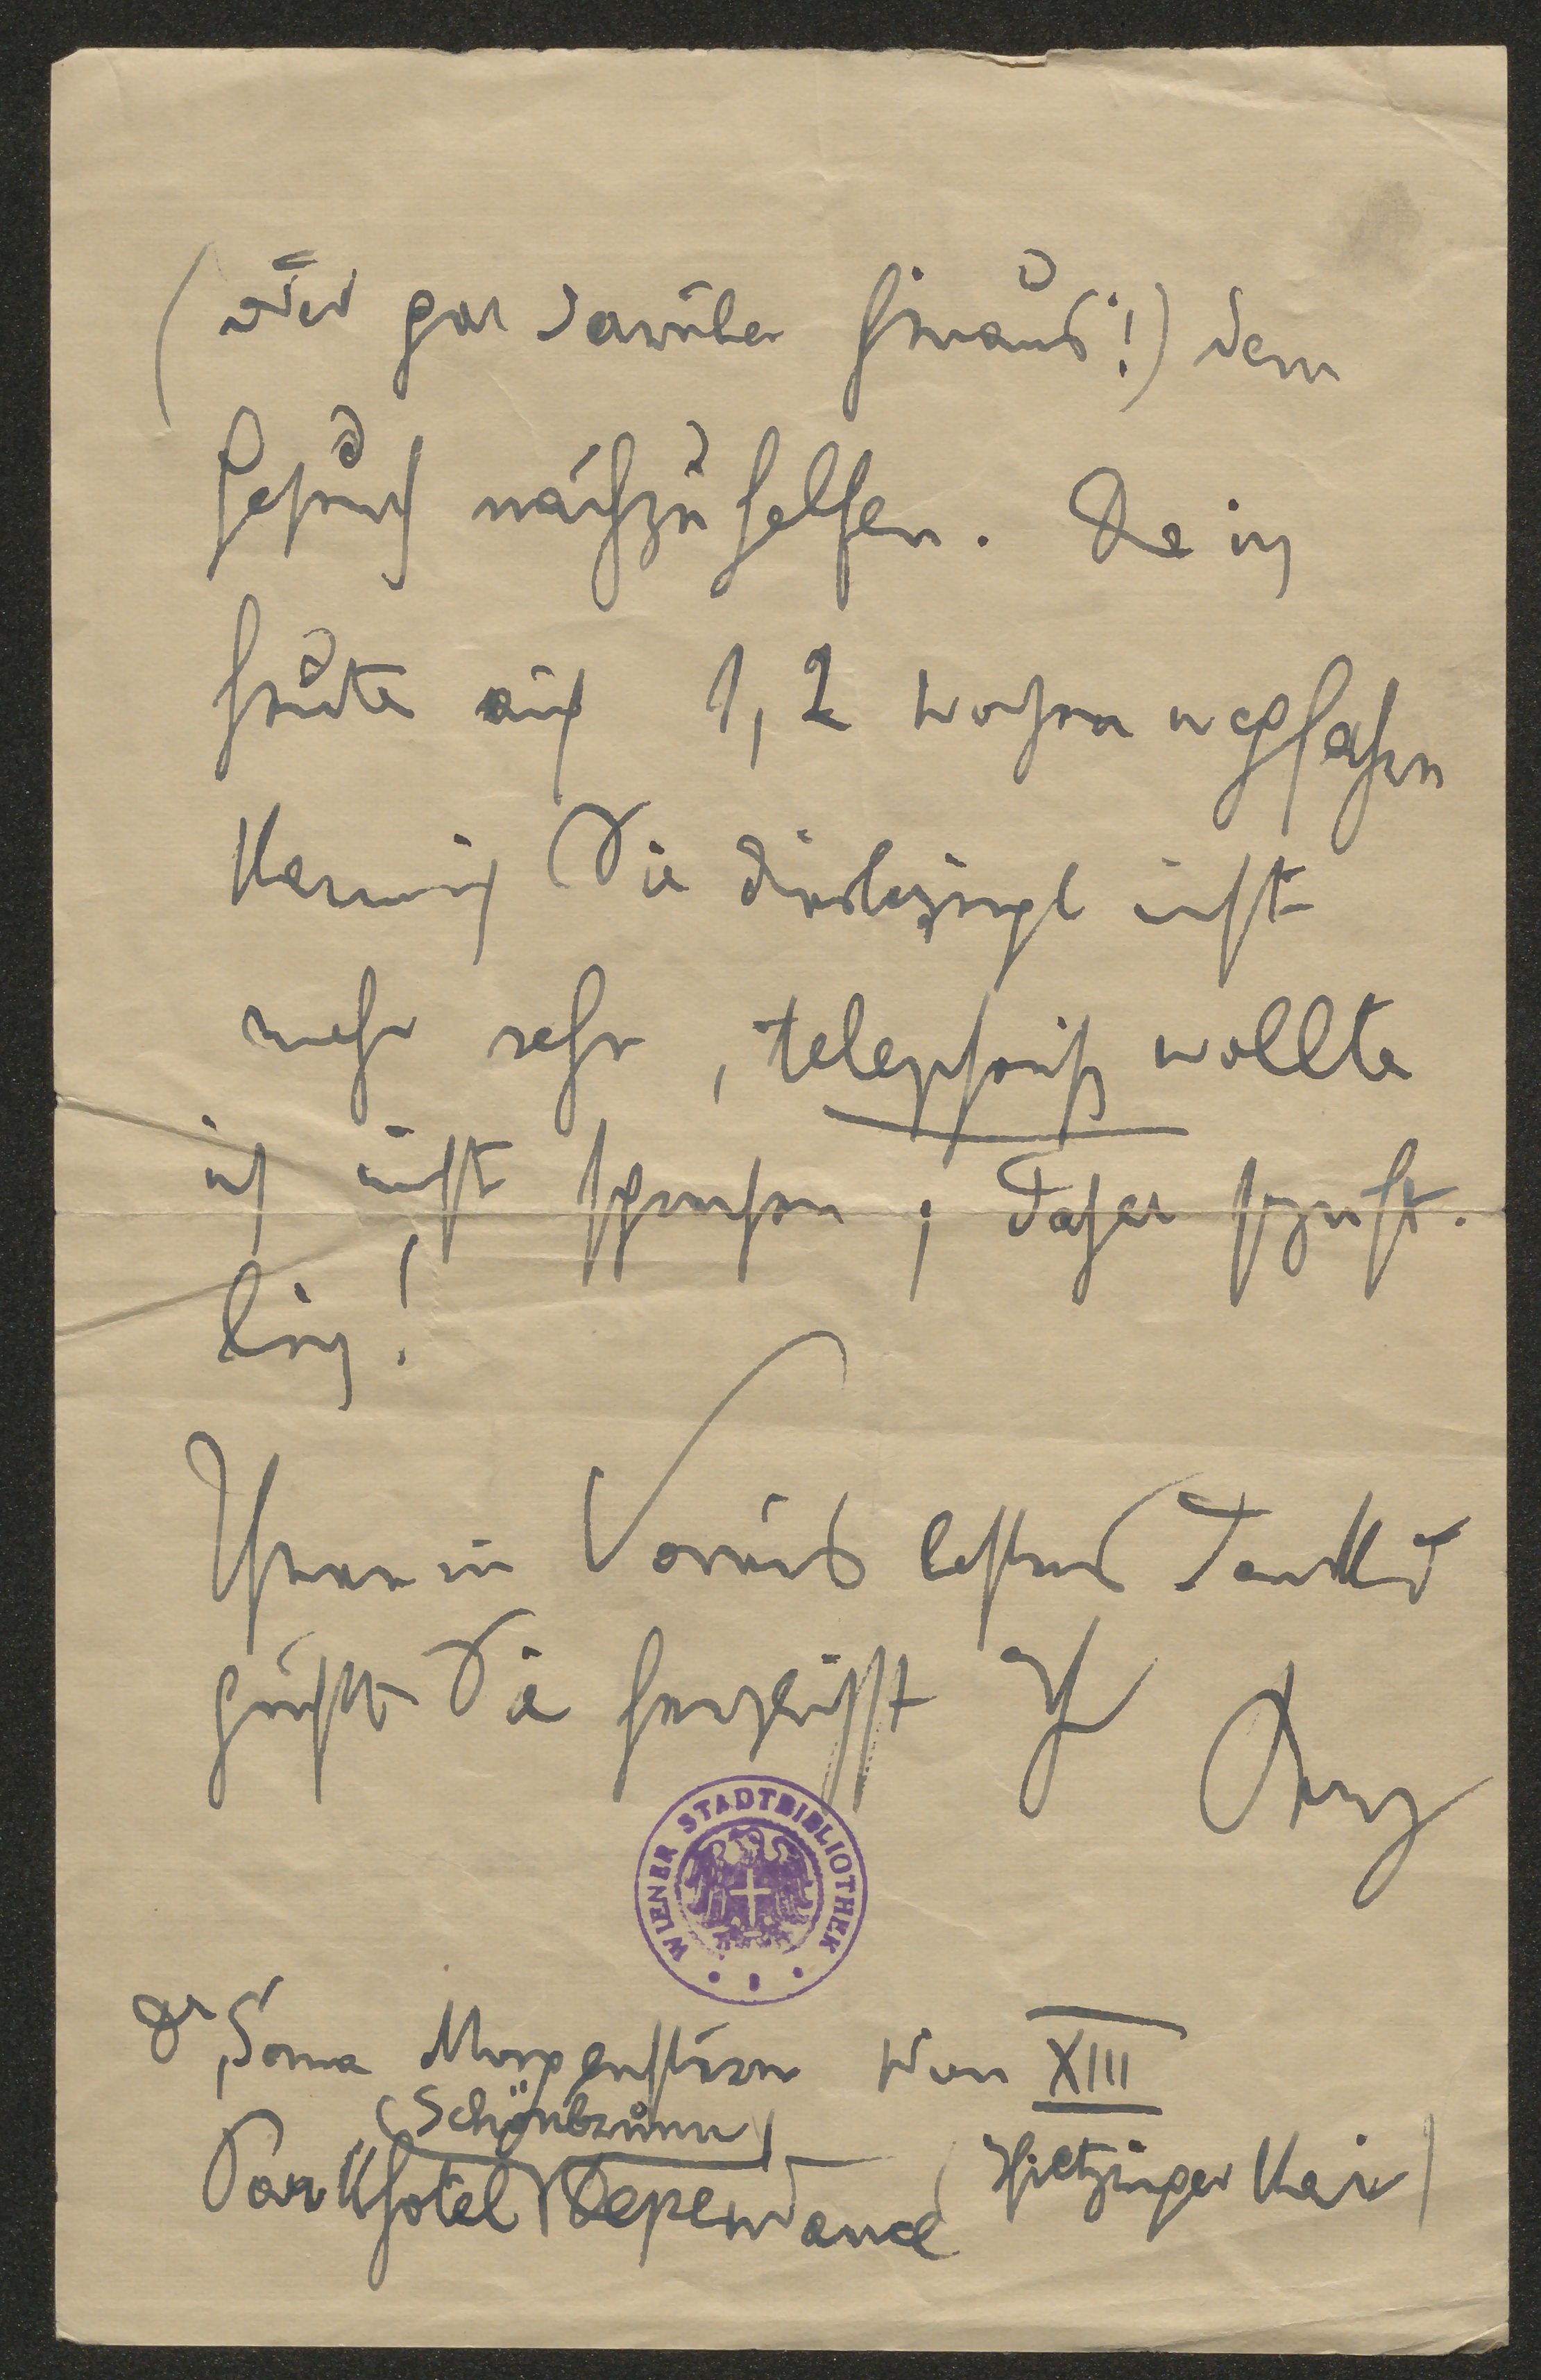 (oder gar darüber hinaus!) dem
Gesuch nachzuhelfen. Da ich
heute auf 1, 2 Wochen wegfahre
kann ich Sie diesbezügl nicht
mehr sehn, telephonisch wollte
ich nicht sprechen; daher schrift-
lich!
Ihnen im Voraus bestens dankend
grüßt Sie herzlichst Ihr Berg
WIENER STADTBIBLIOTHEK
Dr Soma Morgenstern Wien XIII
(Schönbrunn)
Parkhotel Dependance (Hietzinger Kai)